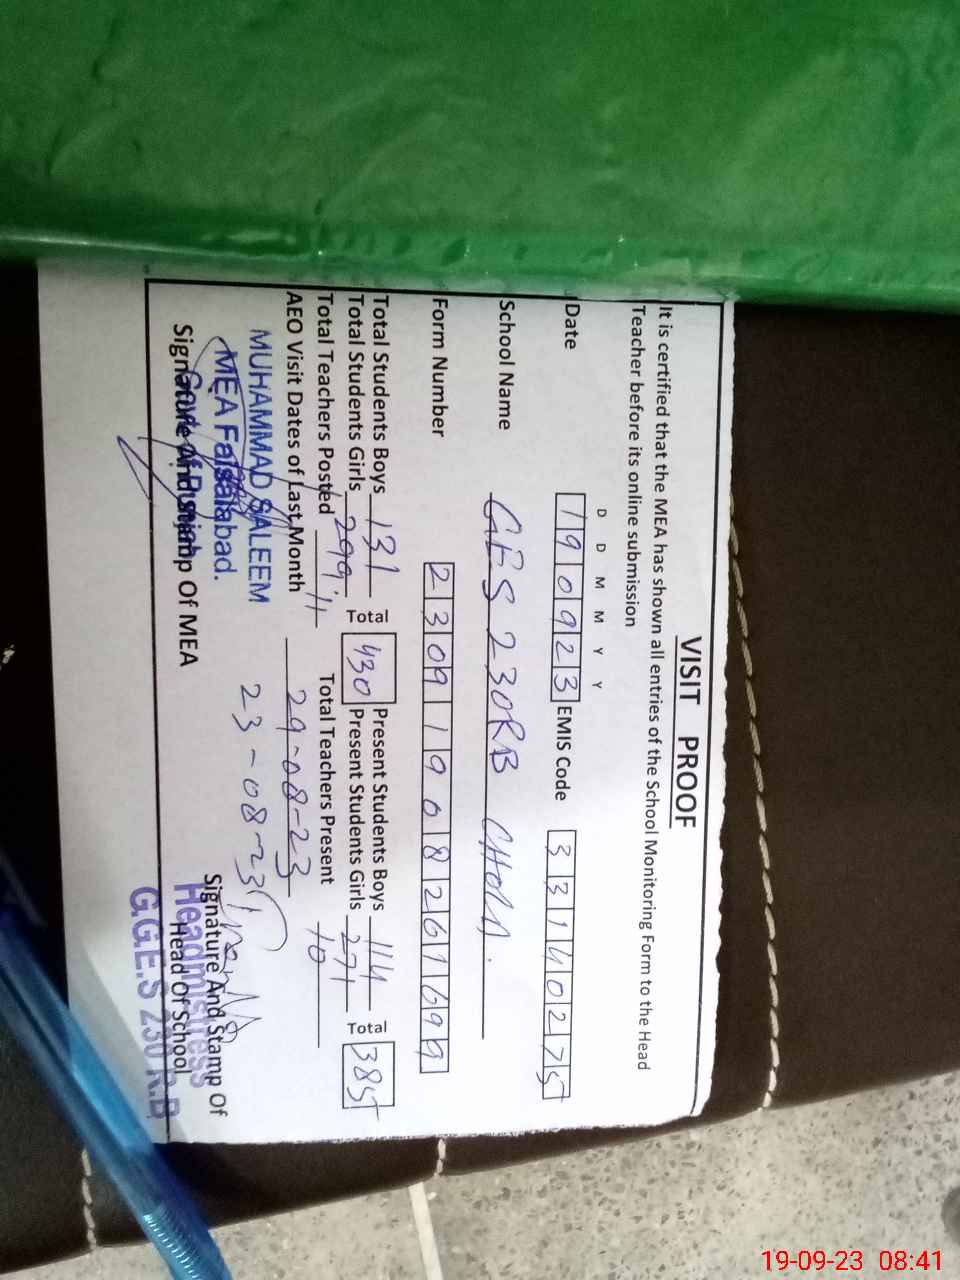 VISIT PROOF
It is certified that the MEA has shown all entries of the School Monitoring Form to the Head
Teacher before its online submission
D D M M Y Y
Date 190923 EMIS Code 33140275
School Name GES 230RB
Form Number 23091908261699
Total Students Boys 131 Total 430 Present Students Boys 114 Total 385
Total Students Girls 299 Present Students Girls 271
Total Teachers Posted 11 Total Teachers Present 10
AEO Visit Dates of Last Month 29-08-23
23-08-23
MUHAMMAD SALEEM
MEA Faisalabad.
Signature And Stamp Of MEA
Signature And Stamp Of
Head Of School
Headmistress
G.G.E.S 230 R.B
19-09-23 08:41